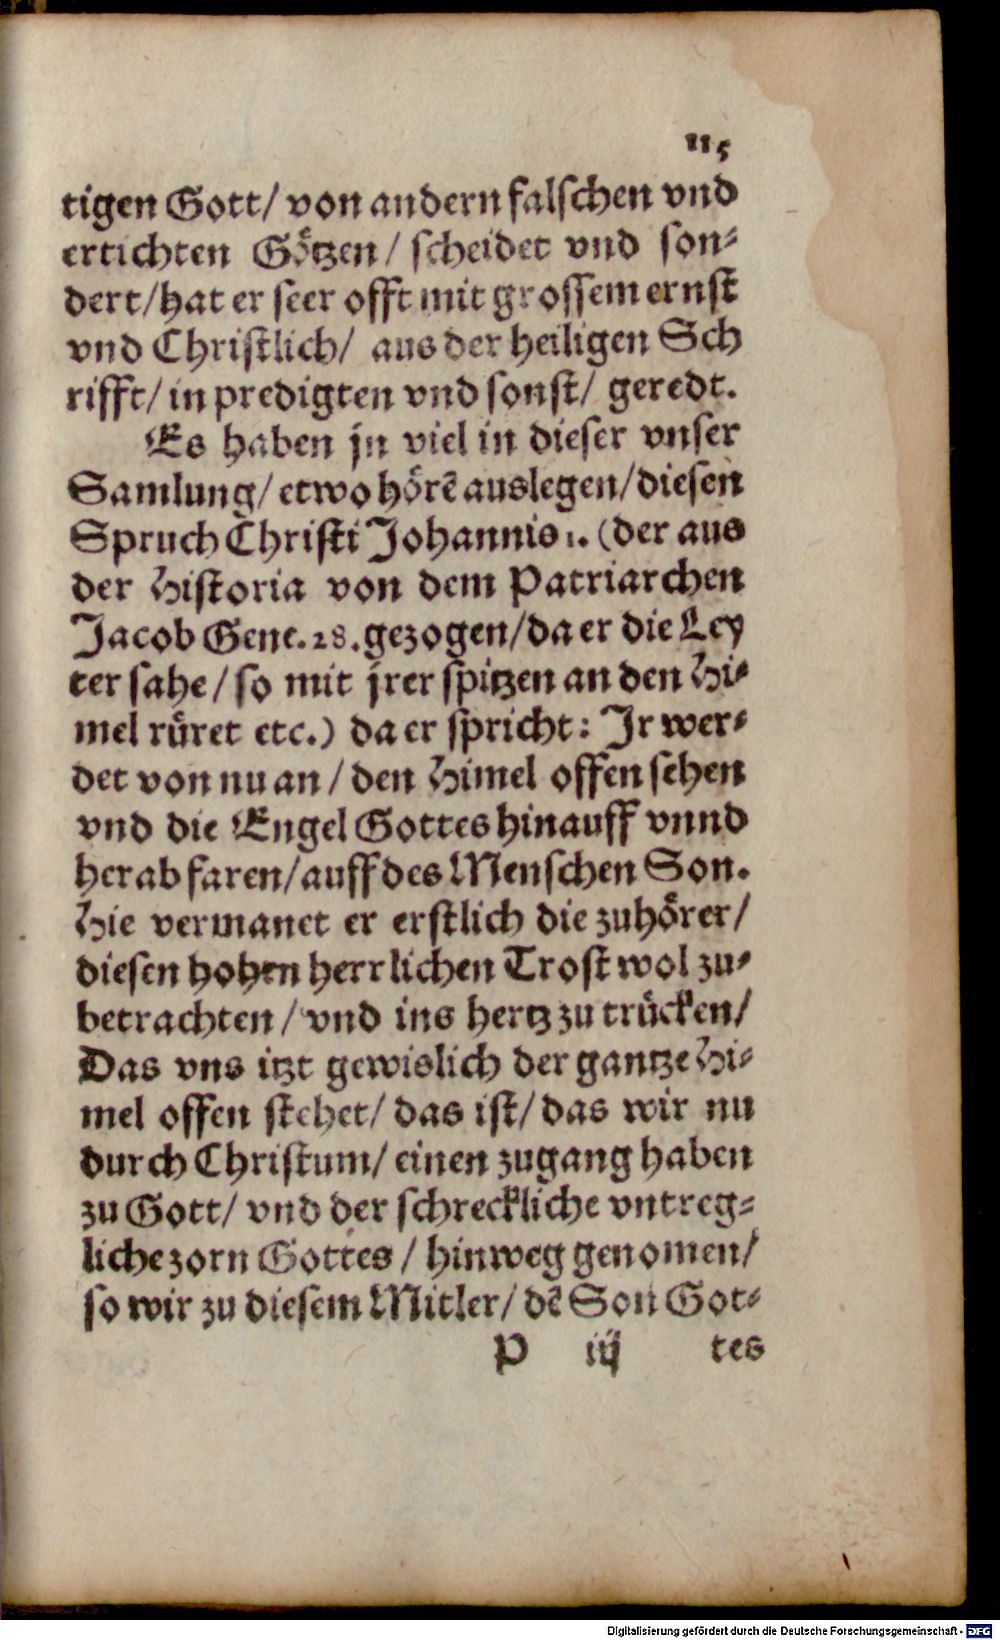 115
tigen Gott/ von andern falschen vnd
ertichten Götzen/ scheidet vnd son⸗
dert/hat er seer offt mit grossem ernst
vnd Christlich/ aus der heiligen Sch
rifft/ in predigten vnd sonst/ geredt.
Es haben jn viel in dieser vnser
Samlung/ etwo hörē auslegen/diesen
Spruch Christi Johannis 1. (der aus
der Historia von dem Patriarchen
Jacob Gene. 28. gezogen/da er die Ley
ter sahe/ so mit jrer spitzen an den Hi⸗
mel rüret etc.) da er spricht: Jr wer⸗
det von nu an/ den Himel offen sehen
vnd die Engel Gottes hinauff vnnd
herab faren/auff des Menschen Son.
Hie vermanet er erstlich die zuhörer/
diesen hohen herrlichen Trost wol zu⸗
betrachten/ vnd ins hertz zu trücken/
Das vns itzt gewislich der gantze Hi⸗
mel offen stehet/ das ist/ das wir nu
durch Christum/ einen zugang haben
zu Gott/ vnd der schreckliche vntreg⸗
liche zorn Gottes/ hinweg genomen/
so wir zu diesem Mitler/ dē Son Got⸗
P iij tes
Digitalisierung gefördert durch die Deutsche Forschungsgemeinschaft - DFG